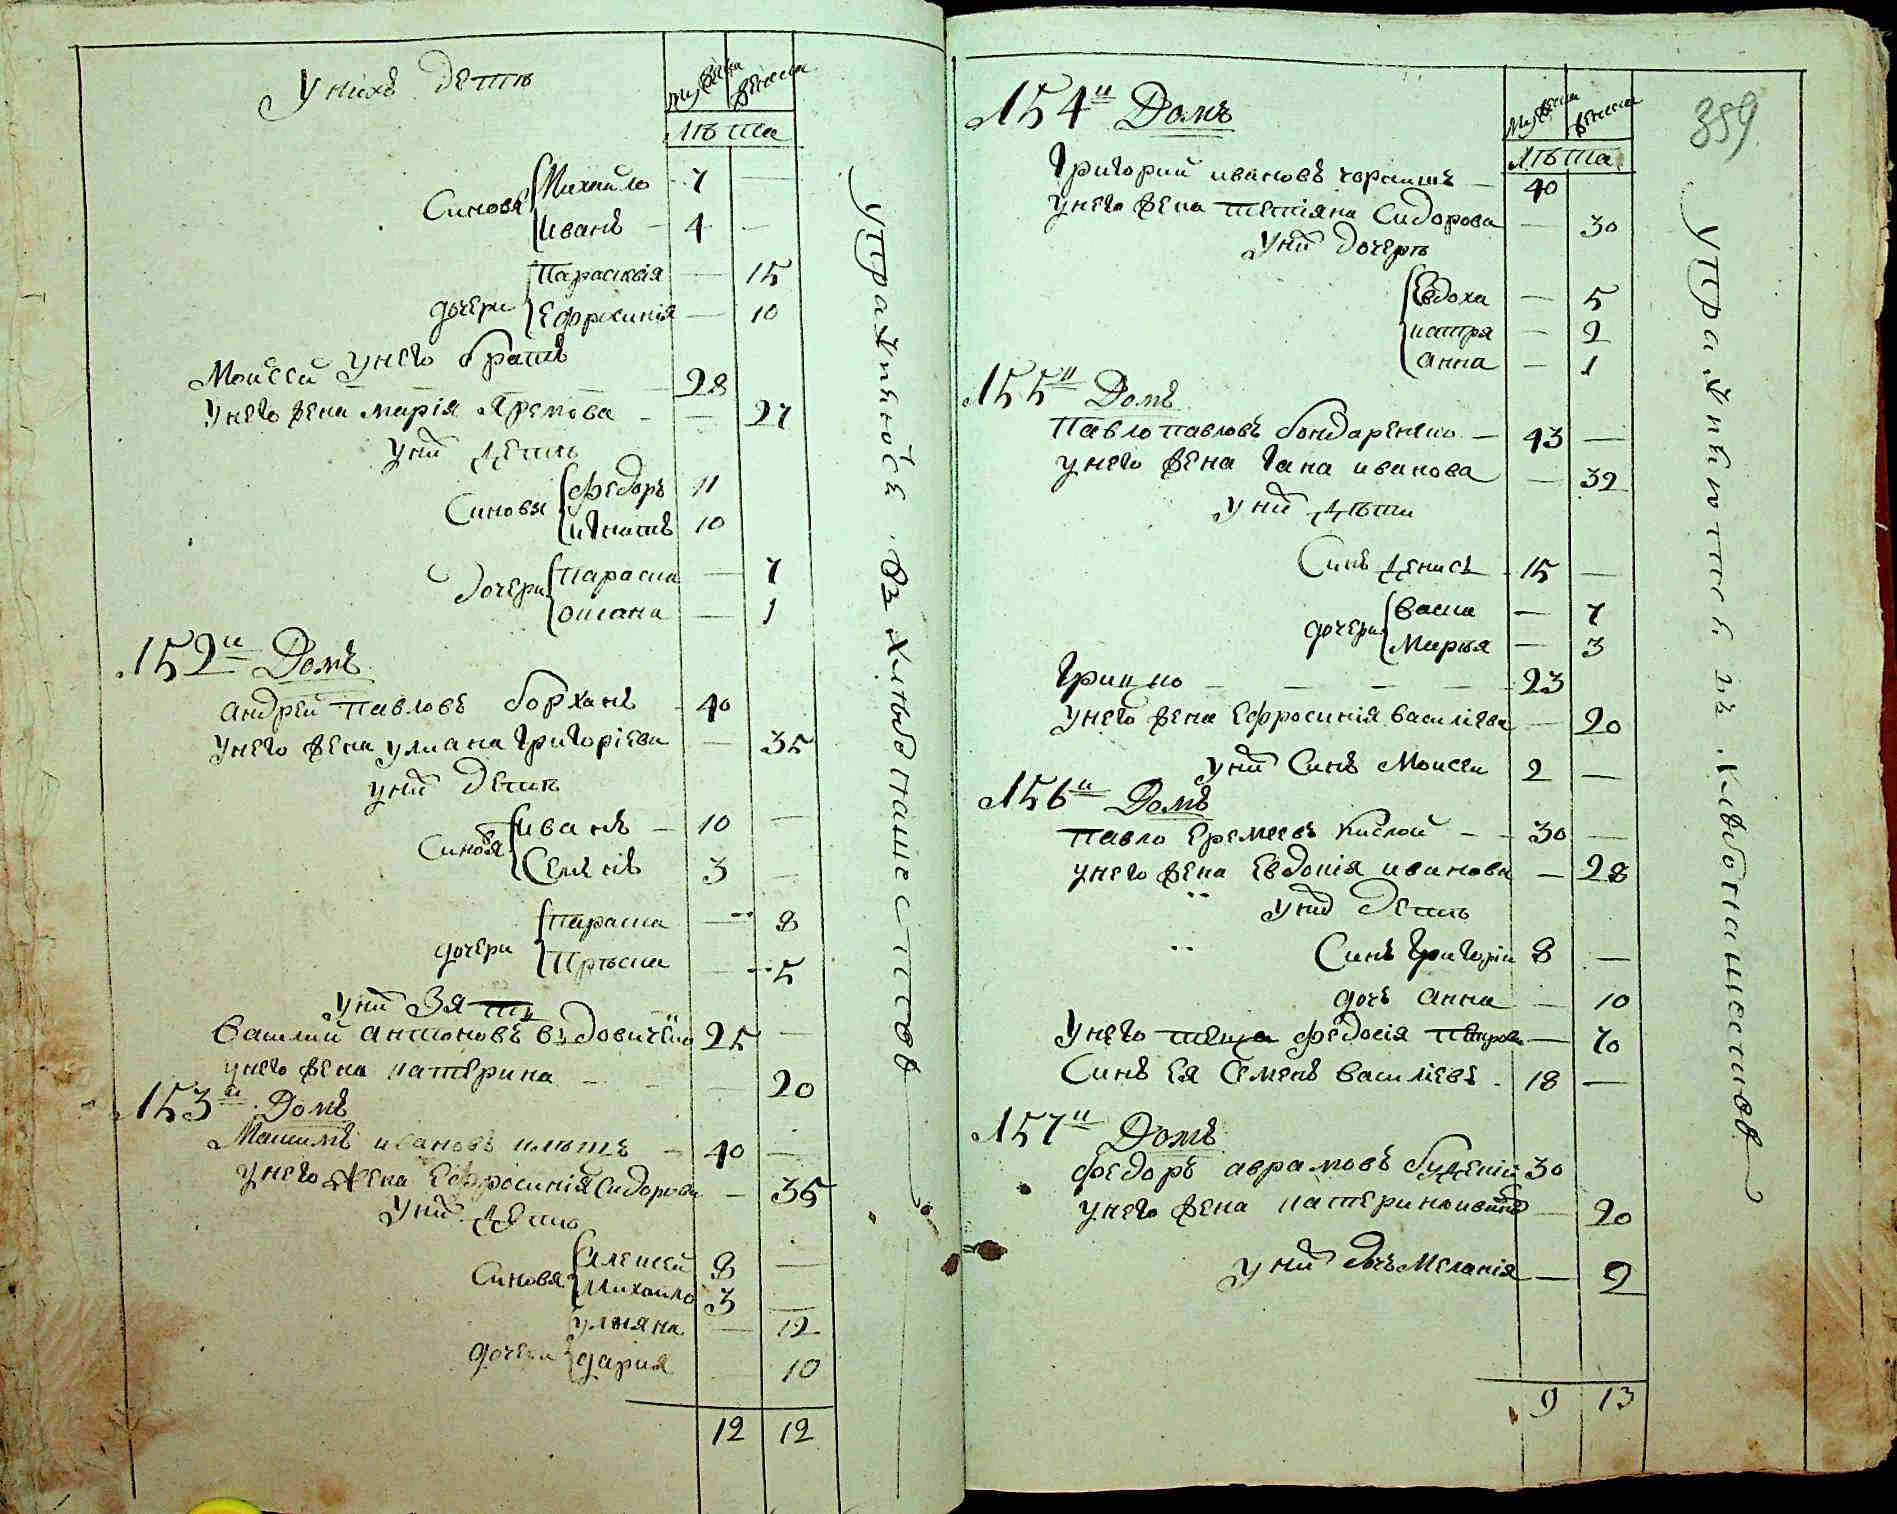 У нихъ дети
мужска женска
лѣта
Синовя Михайло 7 —
Иванъ — 4 —
дочери Параскѣя — 15
Ефросинія — 10
Моисей у него братъ 28
У него жена Марія Яремова — — 27
У ний дети
Синовя Федоръ 11
Игнатъ 10
Дочери Параска — 7
Оксана — 1
152й Домъ
Андрей Павловъ Борханъ 40
У него жена Улиана Григоріева — 35
у ний дети
Синовя Иванъ — 10 —
Семенъ 3 —
дочери Параска — 8
Прѣска — 5
У ний Зять
Василий Антоновъ Вдовиченко 25 —
у него жена Катерина — 20
153й Домъ
Максимъ Ивановъ 40 —
У него жена Ефросинія Сидорова — 35
У ний дети
Синовя Алексей 8 —
Михайло 3 —
дочери Улияна — 12
дария 10
12 12
упражняюсь въ хлѣбопашествов
154й Домъ
359
мужска женска
лѣта
Григорий Ивановъ — 40
У него жена Тетіяна Сидорова — 30
У ний дочерѣ
Евдоха — 5
Катря — 2
Анна — 1
155й Домъ
Павло Павловъ Бондаренко — 43 —
у него жена Гана Иванова — 32
у ний дѣти
Синъ Денисъ 15 —
дочери Васка — 7
Марья — 3
Грицко — — — — 23
У него жена Ефросинія Василіева — 20
у ний Синъ Моисей 2 —
156й Домъ
Павло Еремеевъ Кислой — — 30 —
у него жена Евдокія Иванова — 28
У ний дети
Синъ Григорій 8 —
дочъ Анна — 10
У него теща Федосія Петрова — 70
Синъ Ея Семенъ Василіевъ 18 —
157й Домъ
Федоръ Аврамовъ 30
у него жена Катерина — 20
у ний дочъ Меланія — 2
9 13
хлѣбопашествов